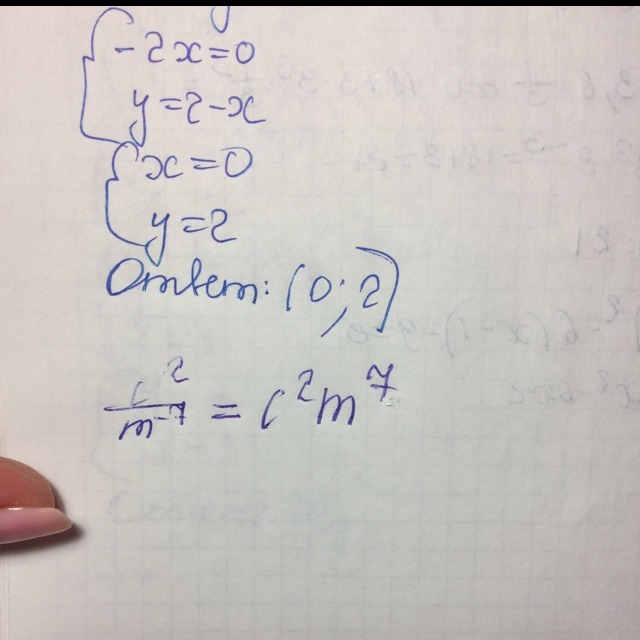 -2x=0
y=2-x
x=0
y=2
Ответ: (0;2)
c²/m⁻⁷ = c²m⁷